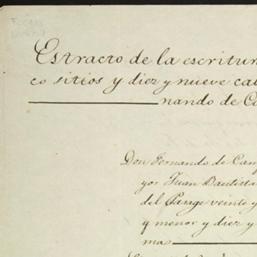 Estracto de la escritur
co sitios y diez y nueve cab
nando de Ca
Don Fernando de Cam
yor Juan Bautista
del Parage veinte y
y menor y diez y
mas